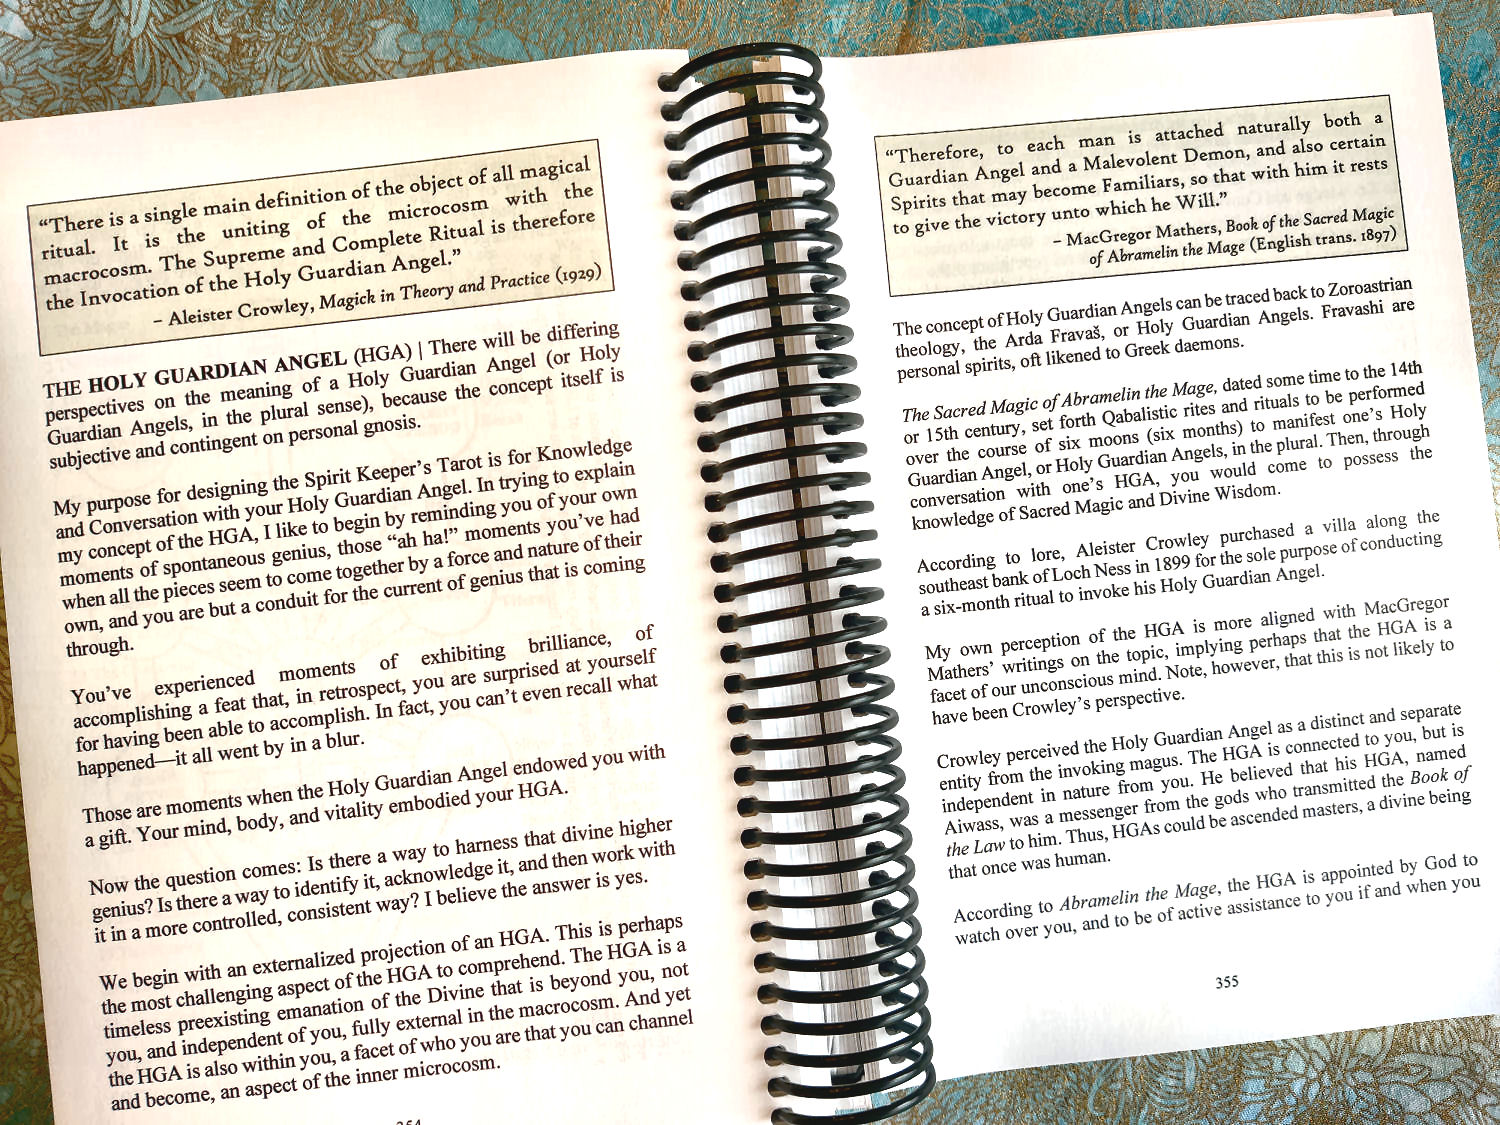 “There is a single main definition of the object of all magical
ritual. It is the uniting of the microcosm with the
macrocosm. The Supreme and Complete Ritual is therefore
the Invocation of the Holy Guardian Angel.”
– Aleister Crowley, Magick in Theory and Practice (1929)
THE HOLY GUARDIAN ANGEL (HGA) | There will be differing
perspectives on the meaning of a Holy Guardian Angel (or Holy
Guardian Angels, in the plural sense), because the concept itself is
subjective and contingent on personal gnosis.
My purpose for designing the Spirit Keeper’s Tarot is for Knowledge
and Conversation with your Holy Guardian Angel. In trying to explain
my concept of the HGA, I like to begin by reminding you of your own
moments of spontaneous genius, those “ah ha!” moments you’ve had
when all the pieces seem to come together by a force and nature of their
own, and you are but a conduit for the current of genius that is coming
through.
You’ve experienced moments of exhibiting brilliance, of
accomplishing a feat that, in retrospect, you are surprised at yourself
for having been able to accomplish. In fact, you can’t even recall what
happened—it all went by in a blur.
Those are moments when the Holy Guardian Angel endowed you with
a gift. Your mind, body, and vitality embodied your HGA.
Now the question comes: Is there a way to harness that divine higher
genius? Is there a way to identify it, acknowledge it, and then work with
it in a more controlled, consistent way? I believe the answer is yes.
We begin with an externalized projection of an HGA. This is perhaps
the most challenging aspect of the HGA to comprehend. The HGA is a
timeless preexisting emanation of the Divine that is beyond you, not
you, and independent of you, fully external in the macrocosm. And yet
the HGA is also within you, a facet of who you are that you can channel
and become, an aspect of the inner microcosm.
354
“Therefore, to each man is attached naturally both a
Guardian Angel and a Malevolent Demon, and also certain
Spirits that may become Familiars, so that with him it rests
to give the victory unto which he Will.”
– MacGregor Mathers, Book of the Sacred Magic
of Abramelin the Mage (English trans. 1897)
The concept of Holy Guardian Angels can be traced back to Zoroastrian
theology, the Arda Fravaš, or Holy Guardian Angels. Fravashi are
personal spirits, oft likened to Greek daemons.
The Sacred Magic of Abramelin the Mage, dated some time to the 14th
or 15th century, set forth Qabalistic rites and rituals to be performed
over the course of six moons (six months) to manifest one’s Holy
Guardian Angel, or Holy Guardian Angels, in the plural. Then, through
conversation with one’s HGA, you would come to possess the
knowledge of Sacred Magic and Divine Wisdom.
According to lore, Aleister Crowley purchased a villa along the
southeast bank of Loch Ness in 1899 for the sole purpose of conducting
a six-month ritual to invoke his Holy Guardian Angel.
My own perception of the HGA is more aligned with MacGregor
Mathers’ writings on the topic, implying perhaps that the HGA is a
facet of our unconscious mind. Note, however, that this is not likely to
have been Crowley’s perspective.
Crowley perceived the Holy Guardian Angel as a distinct and separate
entity from the invoking magus. The HGA is connected to you, but is
independent in nature from you. He believed that his HGA, named
Aiwass, was a messenger from the gods who transmitted the Book of
the Law to him. Thus, HGAs could be ascended masters, a divine being
that once was human.
According to Abramelin the Mage, the HGA is appointed by God to
watch over you, and to be of active assistance to you if and when you
355